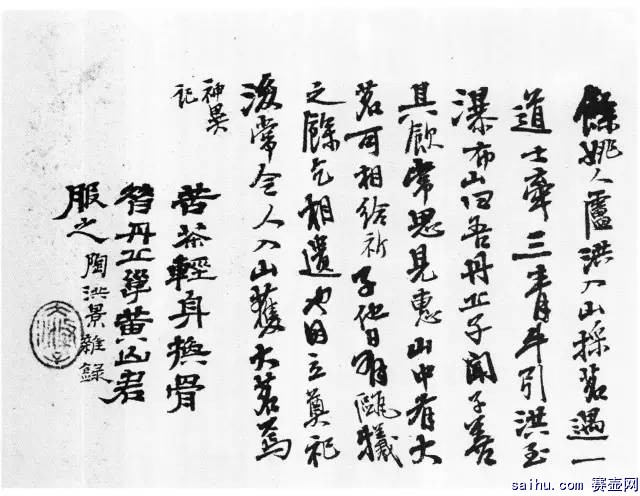 餘姚人盧洪入山採茗遇一
道士牽三青牛引洪至
瀑布山曰吾丹丘子聞子善
具飲常思見惠山中有大
茗可相給祈子他日有甌犧
之餘乞相遺也因立奠祀
後常令人入山獲大茗焉
神異
記
苦茶輕身換骨
昔丹丘黃山君
服之
陶洪景雜錄
saihu.com 赛壶网